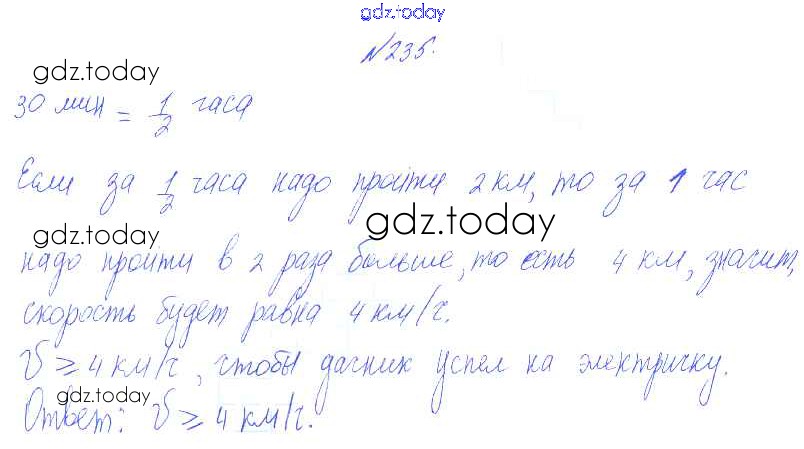 gdz.today
№235.
gdz.today
30 мин = 1/2 часа
Если за 1/2 часа надо пройти 2 км, то за 1 час
gdz.today
gdz.today
надо пройти в 2 раза больше, то есть 4 км, значит,
скорость будет равна 4 км/ч.
V ⩾ 4 км/ч, чтобы дачник успел на электричку.
gdz.today
Ответ: V ⩾ 4 км/ч.